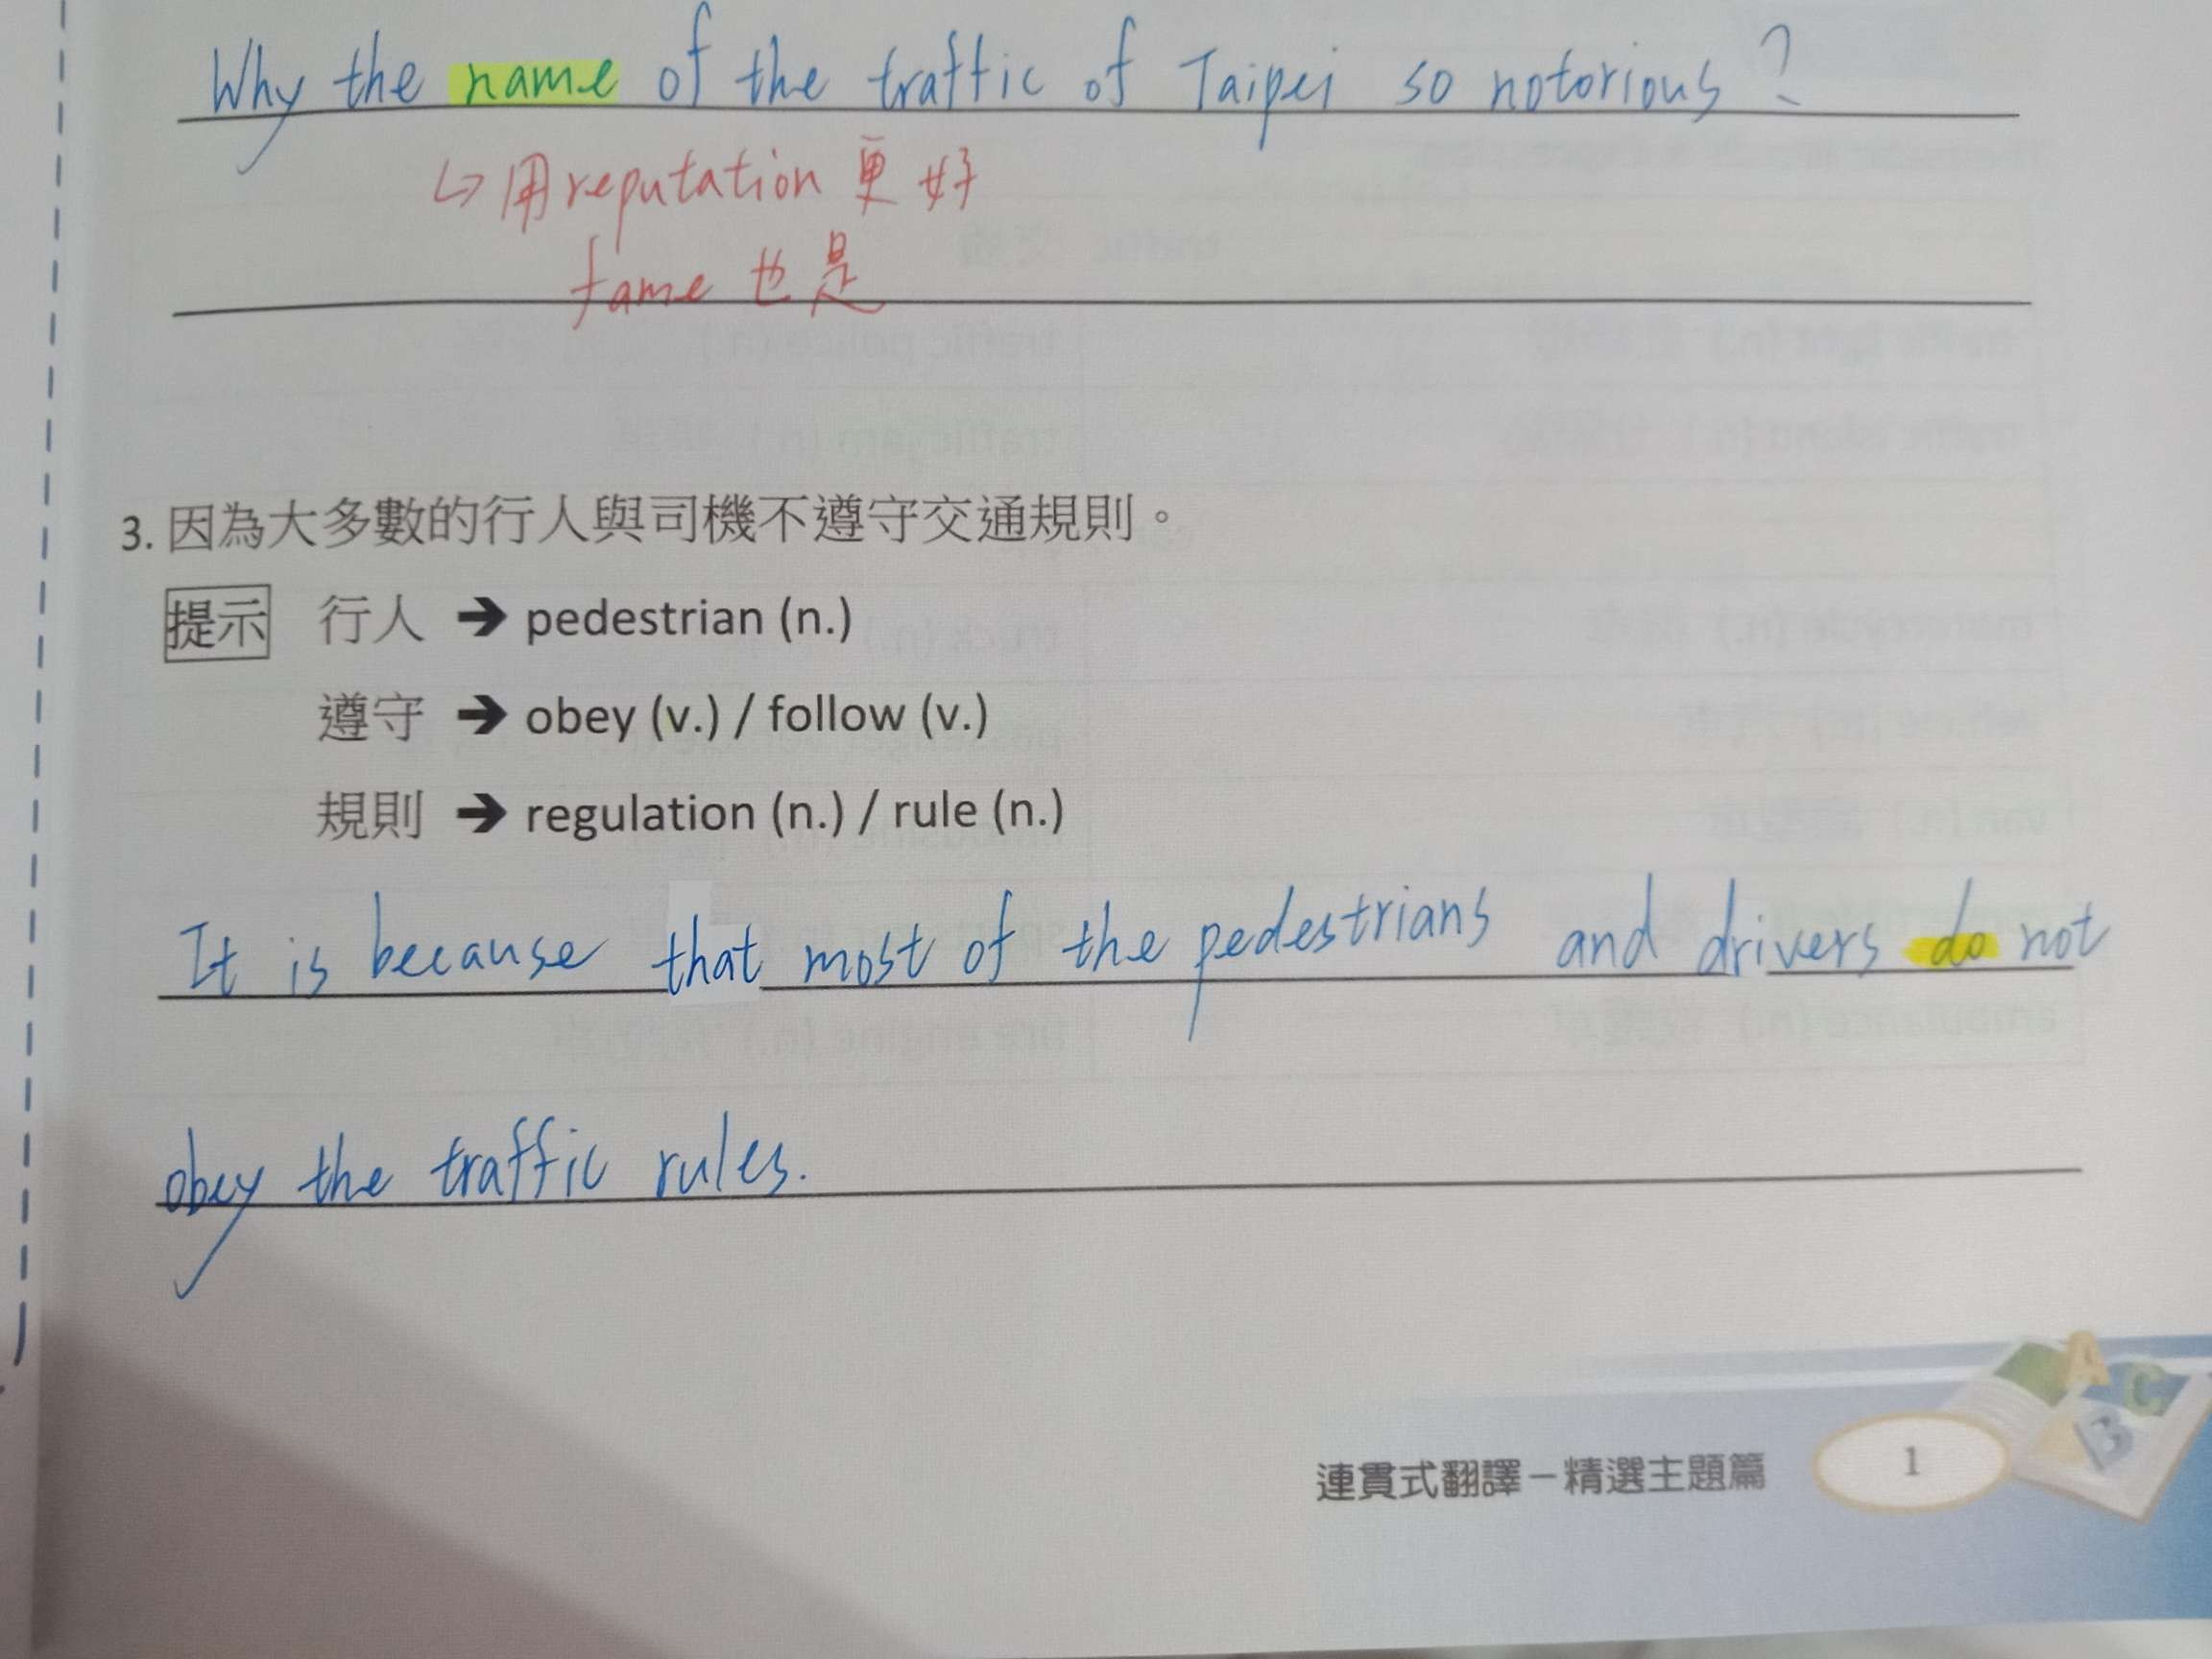 Why the name of the traffic of Taipei so notorious?
↳用reputation更好
fame也是
3. 因為大多數的行人與司機不遵守交通規則。
提示 行人 ➔ pedestrian (n.)
遵守 ➔ obey (v.) / follow (v.)
規則 ➔ regulation (n.) / rule (n.)
It is because that most of the pedestrians and drivers do not
obey the traffic rules.
連貫式翻譯－精選主題篇 1
A C
B